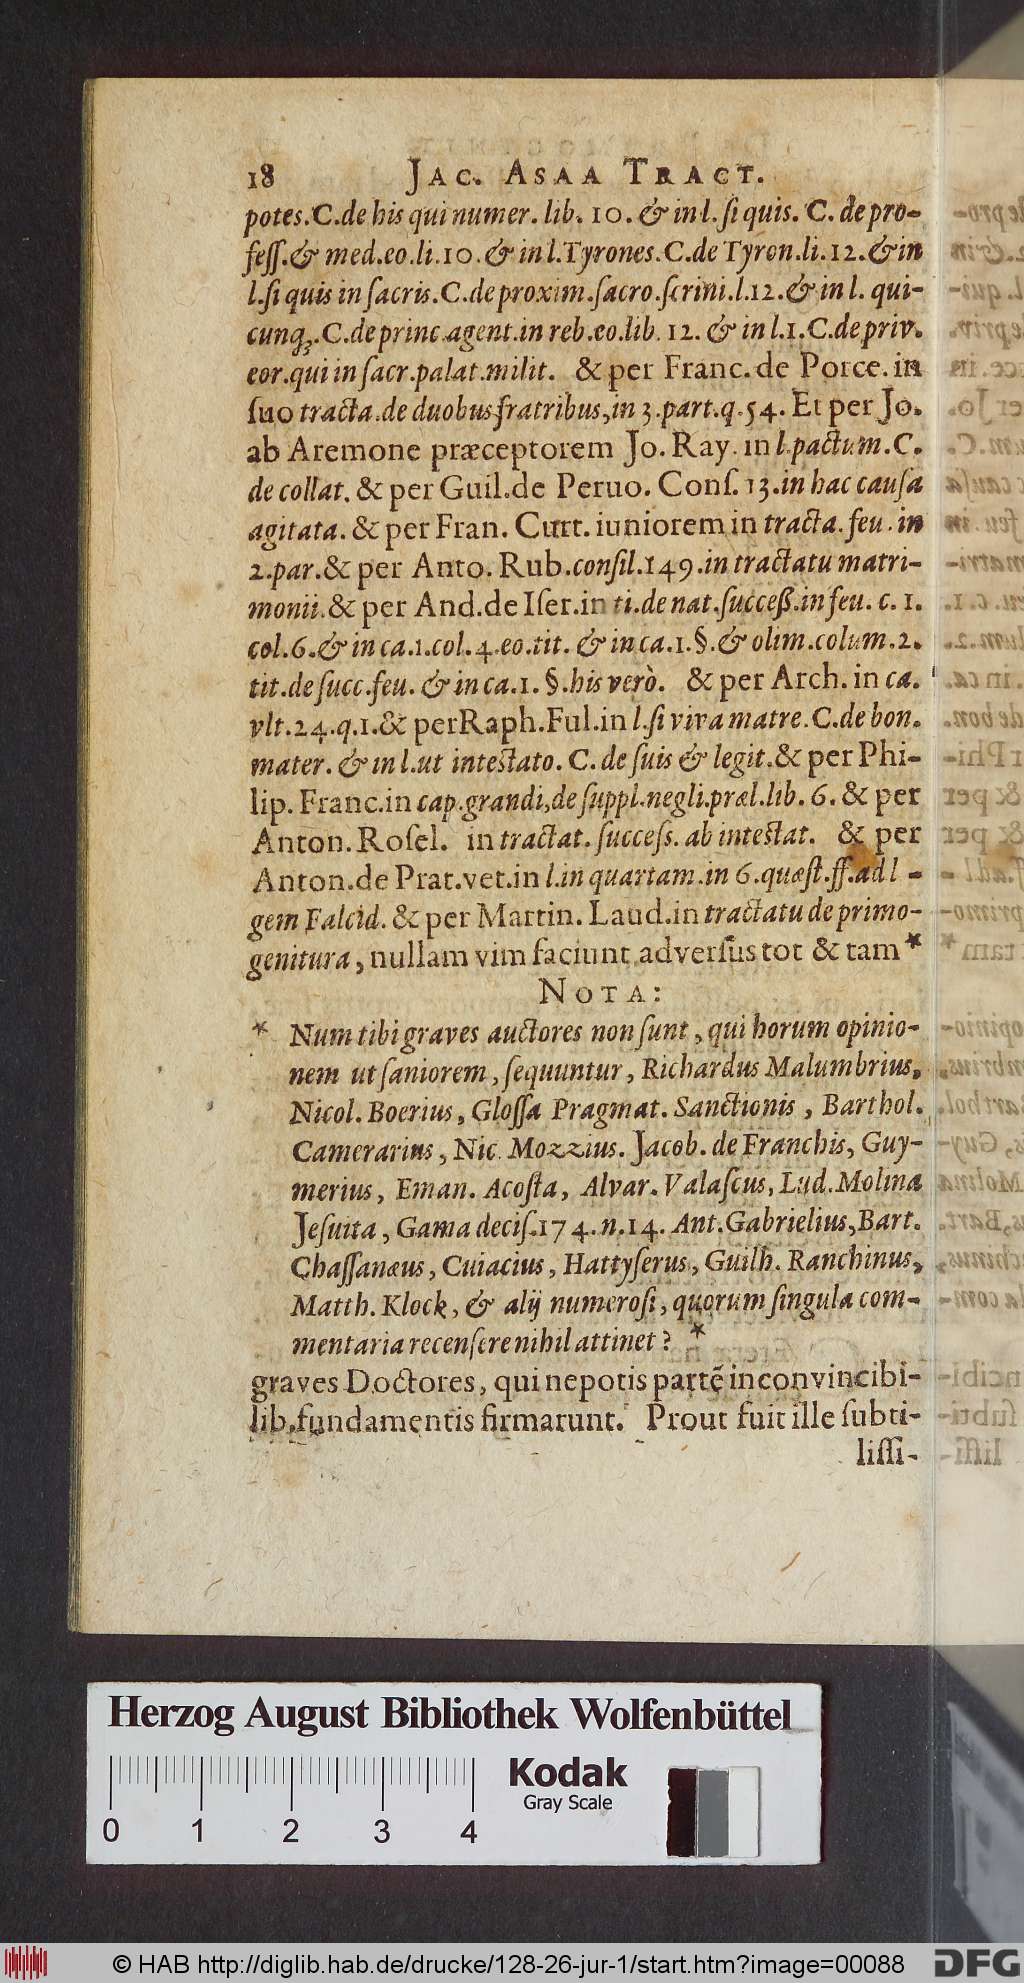 18 JAC. ASAA TRACT.
potes. C. de his qui numer. lib. 10. & in l. ſi quis. C. de pro-
feſſ. & med. eo. li. 10. & in l. Tyrones. C. de Tyron. li. 12. & in
l. ſi quis in ſacris. C. de proxim. ſacro. ſcrini. l. 12. & in l. qui-
cunq;. C. de princ. agent. in reb. eo. lib. 12. & in l. 1. C. de priv.
eor. qui in ſacr. palat. milit. & per Franc. de Porce. in
ſuo tracta. de duobus fratribus, in 3. part. q. 54. Et per Jo.
ab Aremone præceptorem Jo. Ray. in l. pactum. C.
de collat. & per Guil. de Peruo. Conſ. 13. in hac cauſa
agitata. & per Fran. Curt. iuniorem in tracta. feu. in
2. par. & per Anto. Rub. conſil. 149. in tractatu matri-
monii. & per And. de Iſer. in ti. de nat. ſucceß. in feu. c. 1.
col. 6. & in ca. 1. col. 4. eo. tit. & in ca. 1. §. & olim. colum. 2.
tit. de ſucc. feu. & in ca. 1. §. his verò. & per Arch. in ca.
vlt. 24. q. 1. & per Raph. Ful. in l. ſi viva matre. C. de bon.
mater. & in l. ut inteſtato. C. de ſuis & legit. & per Phi-
lip. Franc. in cap. grandi, de ſuppl. negli. præl. lib. 6. & per
Anton. Roſel. in tractat. ſucceſs. ab inteſtat. & per
Anton. de Prat. vet. in l. in quartam. in 6. quæſt. ff. ad l -
gem Falcid. & per Martin. Laud. in tractatu de primo-
genitura, nullam vim faciunt adverſus tot & tam *
NOTA:
* Num tibi graves auctores non ſunt, qui horum opinio-
nem ut ſaniorem, ſequuntur, Richardus Malumbrius,
Nicol. Boerius, Gloſſa Pragmat. Sanctionis, Barthol.
Camerarius, Nic. Mozzius. Jacob. de Franchis, Guy-
merius, Eman. Acoſta, Alvar. Valaſcus, Lud. Molina
Jeſuita, Gama deciſ. 174. n. 14. Ant. Gabrielius, Bart.
Chaſſanæus, Cuiacius, Hattyſerus, Guilh. Ranchinus,
Matth. Klock, & alij numeroſi, quorum ſingula com-
mentaria recenſere nihil attinet? *
graves Doctores, qui nepotis partē inconvincibi-
lib. fundamentis firmarunt. Prout fuit ille ſubti-
liſſi-
Herzog August Bibliothek Wolfenbüttel
Kodak
Gray Scale
0 1 2 3 4
© HAB http://diglib.hab.de/drucke/128-26-jur-1/start.htm?image=00088
DFG